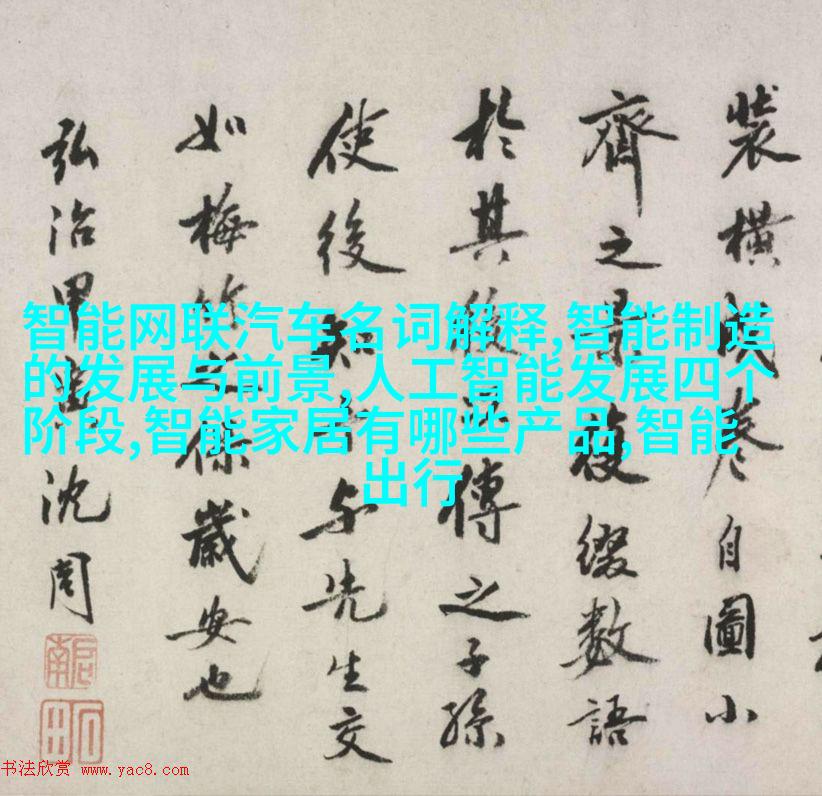 智能网联汽车名词解释,智能制造
的发展与前景,人工智能发展四个
阶段,智能家居有哪些产品,智能
出行
裝橫成卷自圖小
齊之綴數語
於其後傳之子孫
使後知与先生交
如梅竹保歲安也
弘治甲沈周
书法欣赏 www.yac8.com